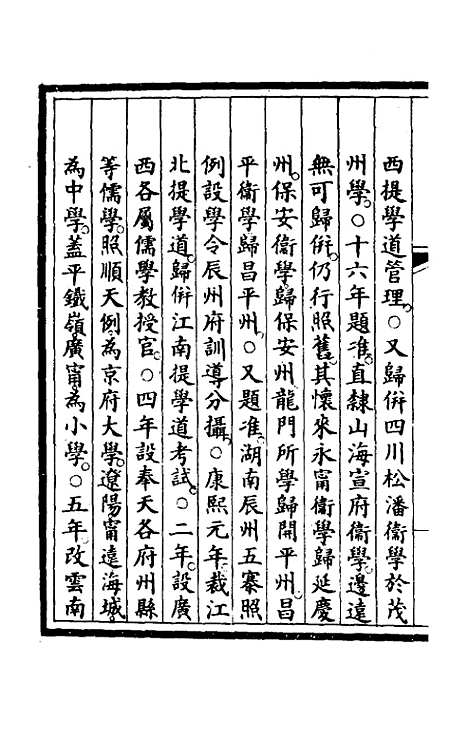 西提學道管理。○又歸併四川松潘衞學於茂
州學。○十六年題准。直隸山海宣府衞學。邊遠
無可歸併。仍行照舊。其懷來永甯衞學歸延慶
州。保安衞學。歸保安州龍門所學歸開平州。昌
平衞學歸昌平州。○又題准。湖南辰州五寨照
例設學令辰州府訓導分攝。○康熙元年。裁江
北提學道。歸併江南提學道考試。○二年。設廣
西各屬儒學教授官。○四年設奉天各府州縣
等儒學。照順天例。為京府大學。遼陽甯遠海城。
為中學。蓋平鐵嶺。廣甯。為小學。○五年。改雲南